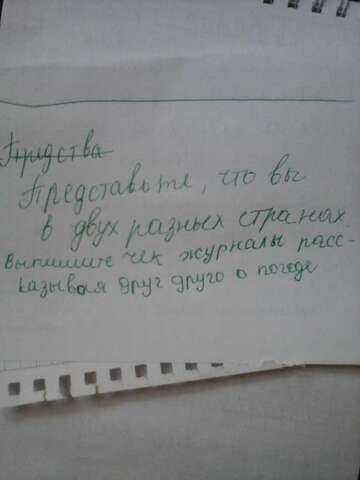 Предства
Представьте, что вы
в двух разных странах
Выпишите чек журналы расс-
казывая друг друго о погоде